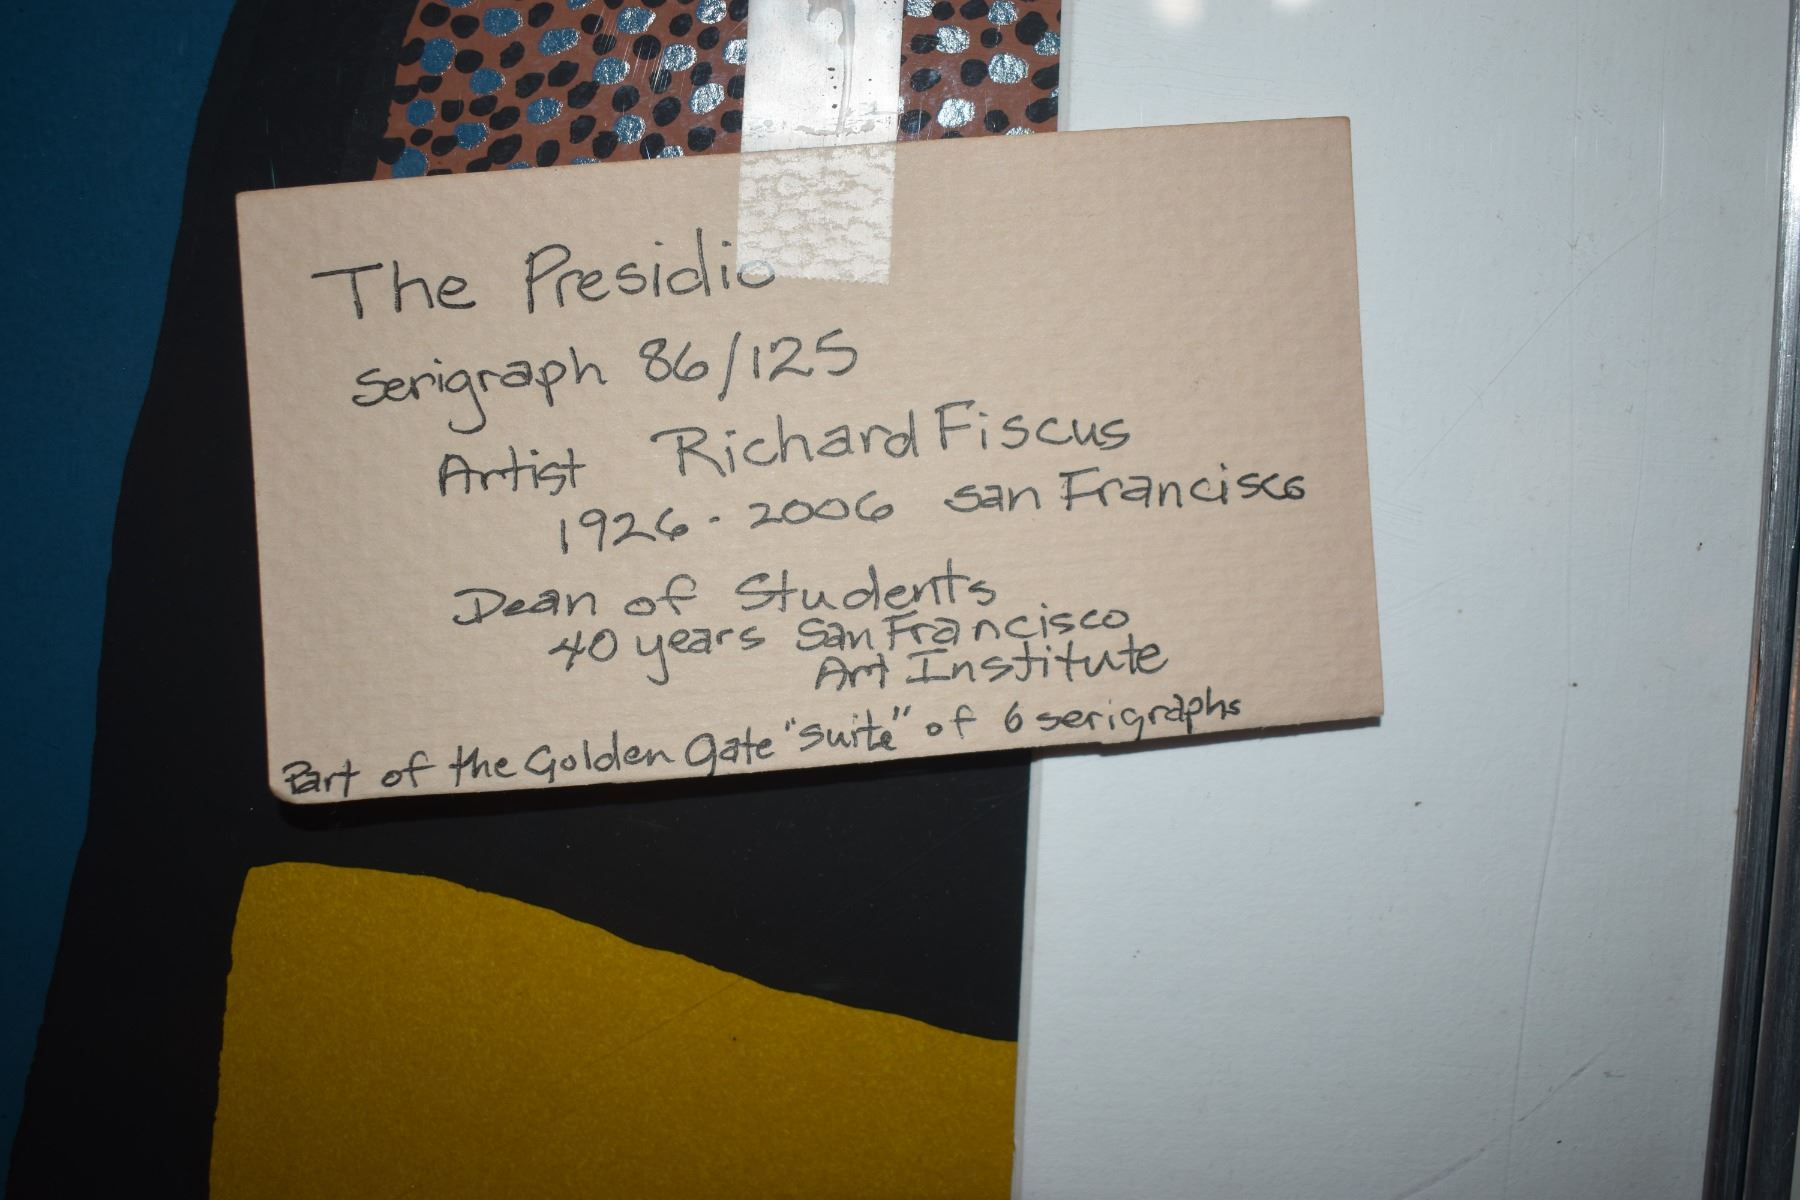 The Presidio
Serigraph 86/125
Artist Richard Fiscus
1926 - 2006 San Francisco
Dean of Students
40 years San Francisco
Art Institute
Part of the Golden Gate "suite" of 6 serigraphs